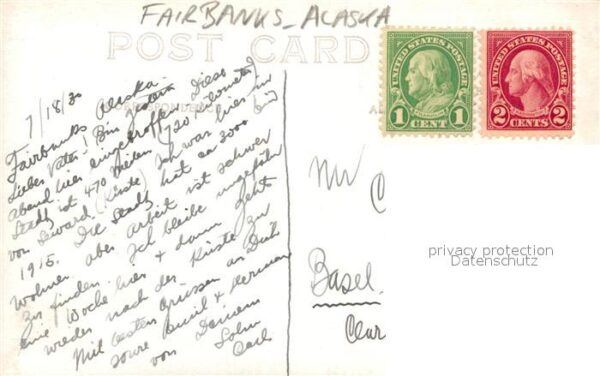 FAIRBANKS - ALASKA
POST CARD
UNITED STATES POSTAGE
1 CENT 1
UNITED STATES POSTAGE
2 CENTS 2
7/18/30
Fairbanks Alaska.
Lieber Vater! Bin gestern Diesen
Abend hier eingetroffen. Diese
Stadt ist 470 Meilen (720 Kilometer)
von Seward. (Küste) Ich war hier in
1915. Die Stadt hat ca 3000
Wohner aber Arbeit ist schwer
zu finden. Ich bleibe ungefähr
eine Woche hier & dann geht
wieder nach der Küste zu
Mit besten Grüssen an Dich
sowie Emil & Hermann
von Deinem
Sohn
Carl
Mr C
Basel.
privacy protection
Datenschutz